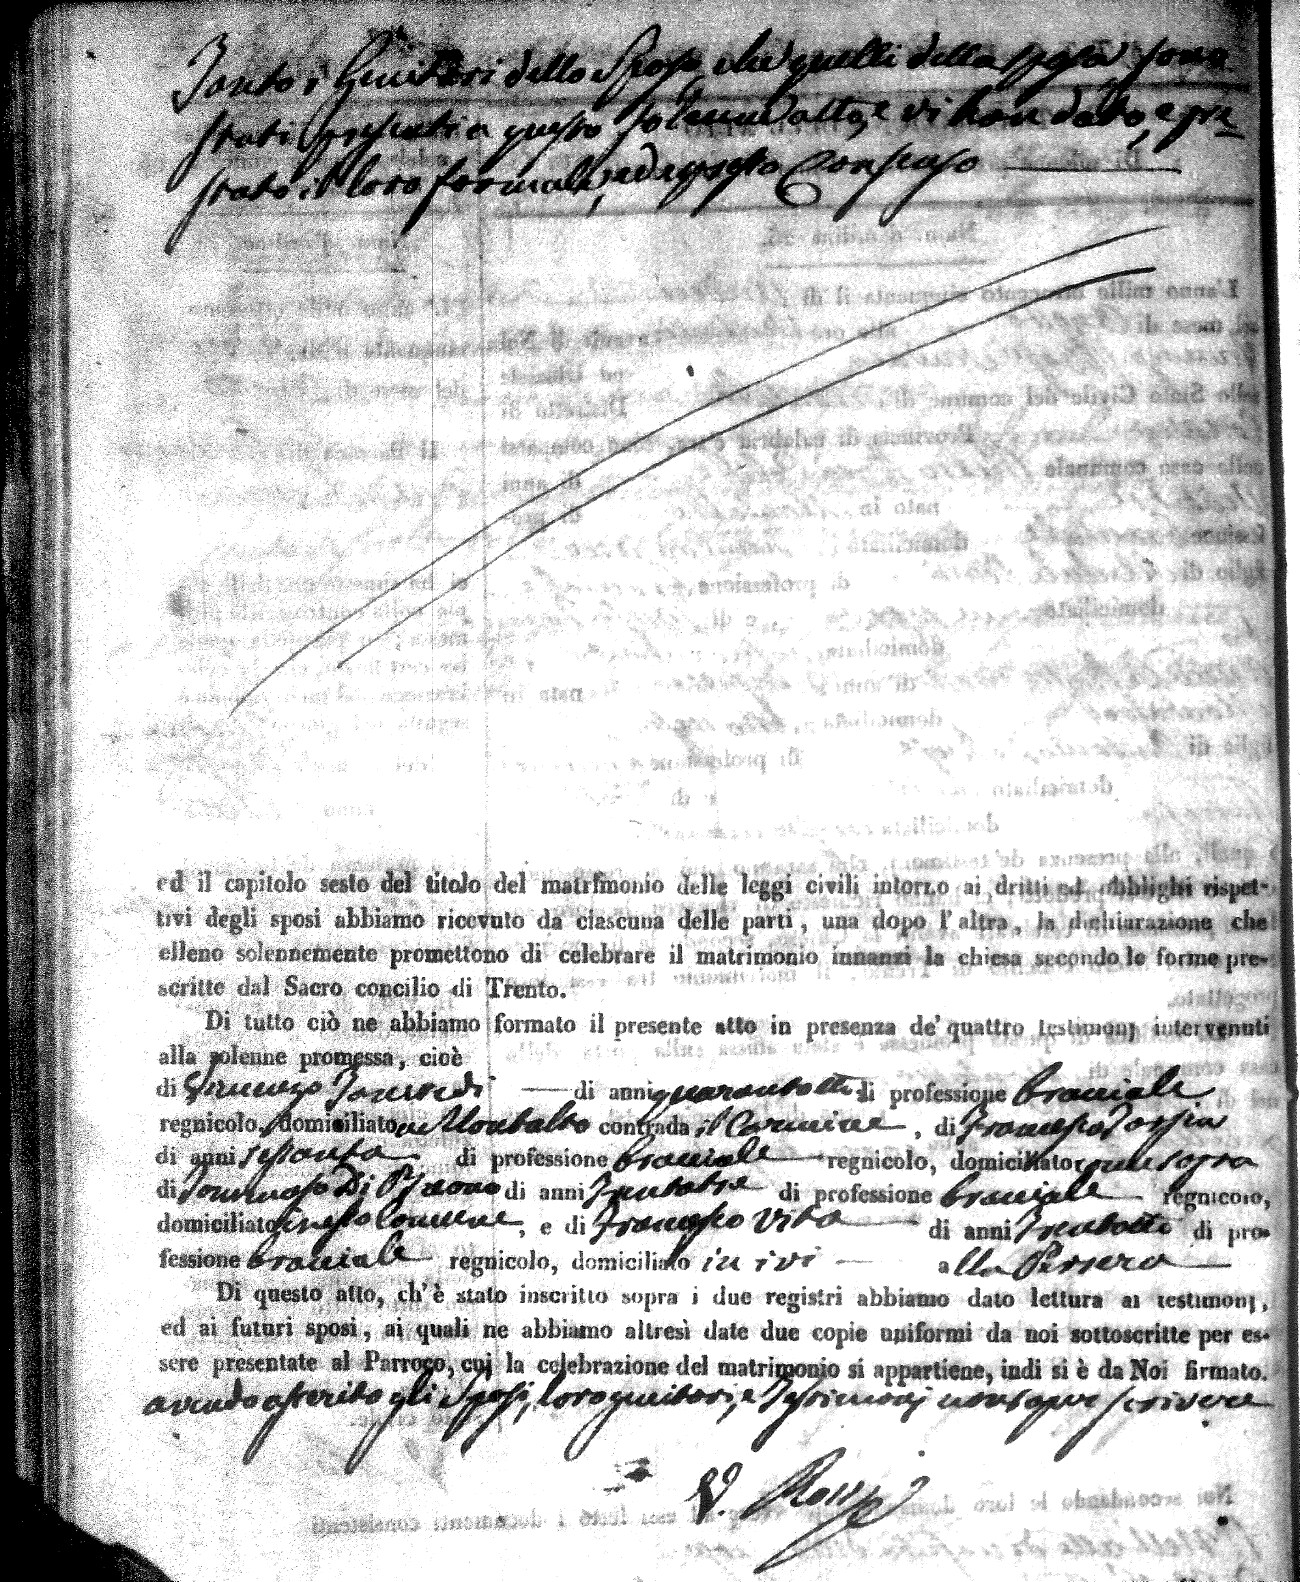 Tanto i Genitori dello Sposo, che quelli della sposa sono
stati presenti a questo solenne atto, e vi han dato, e pre-
stato il loro formale, ed espresso Consenso
ed il capitolo sesto del titolo del matrimonio delle leggi civili intorno ai dritti ed obblighi rispet-
tivi degli sposi abbiamo ricevuto da ciascuna delle parti, una dopo l'altra, la dichiarazione che
elleno solennemente promettono di celebrare il matrimonio innanzi la chiesa secondo le forme pre-
scritte dal Sacro concilio di Trento.
Di tutto ciò ne abbiamo formato il presente atto in presenza de' quattro testimonj intervenuti
alla solenne promessa, cioè
di di anni quarantotto di professione bracciale
regnicolo, domiciliato in Montalto contrada il Carmine, di Francesco
di anni sessanta di professione bracciale regnicolo, domiciliato come sopra
di Tommaso Di di anni trentatre di professione bracciale regnicolo,
domiciliato in esso Comune, e di Francesco Vita di anni trentotto di pro-
fessione bracciale regnicolo, domiciliato in ivi alla
Di questo atto, ch'è stato inscritto sopra i due registri abbiamo dato lettura ai testimonj,
ed ai futuri sposi, ai quali ne abbiamo altresì date due copie uniformi da noi sottoscritte per es-
sere presentate al Parroco, cui la celebrazione del matrimonio si appartiene, indi si è da Noi firmato.
avendo asserito gli Sposi, loro genitori, e Testimonj non saper scrivere